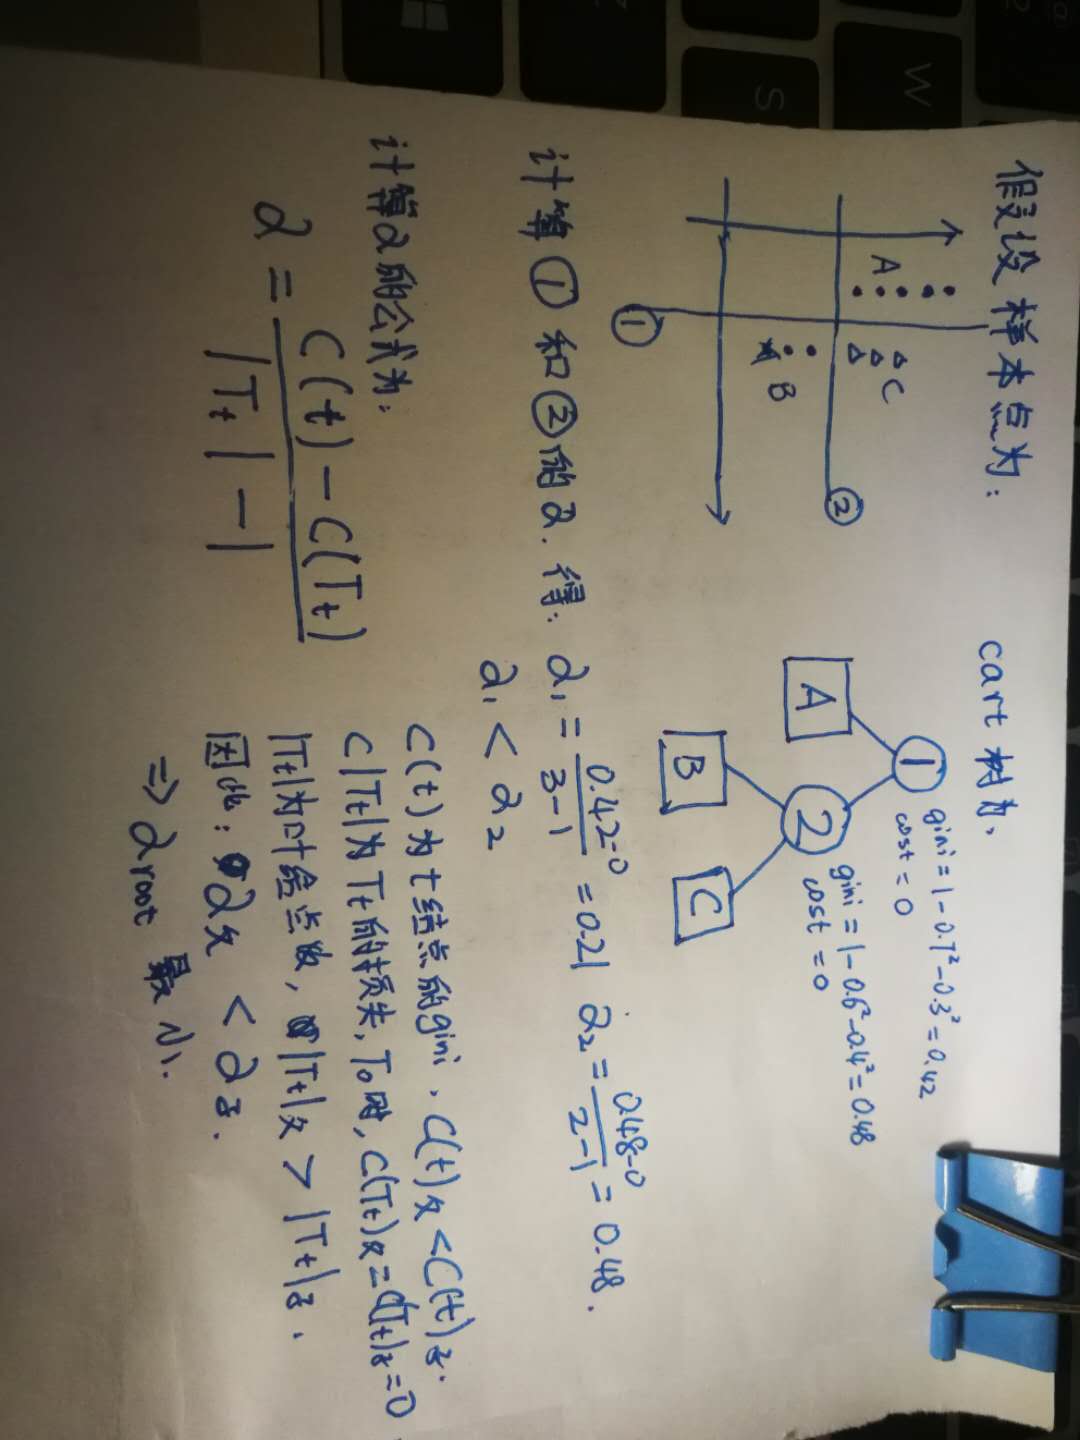 假设样本点为:
A
C
B
①
②
cart 树为,
① gini = 1 - 0.7² - 0.3² = 0.42
cost = 0
A
② gini = 1 - 0.6² - 0.4² = 0.48
cost = 0
B
C
计算①和②的α. 得: α₁ = (0.42-0)/(3-1) = 0.21 α₂ = (0.48-0)/(2-1) = 0.48.
α₁ < α₂
计算α的公式为:
α = (C(t) - C(Tt))/(|Tt| - 1)
C(t)为t结点的gini, C(t)父 < C(t)子.
C|Tt|为Tt的损失, T₀时, C(Tt)父 = C(Tt)子 = 0
|Tt|为叶结点数, |Tt|父 > |Tt|子.
因此: α父 < α子.
⇒ α root 最小.
W
S
Z